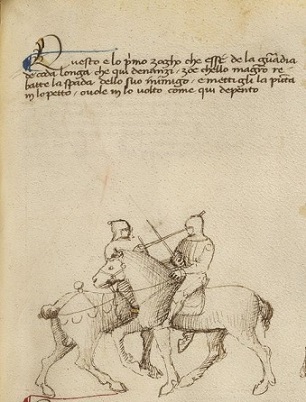 Questo e lo p'mo zogho che esse de la guardia
de coda longa che qui denanzi, zoe che llo magistro re
batte la spada dello suo inimigo, e mettigli la punta
in lo petto, o vole in lo volto come qui depento